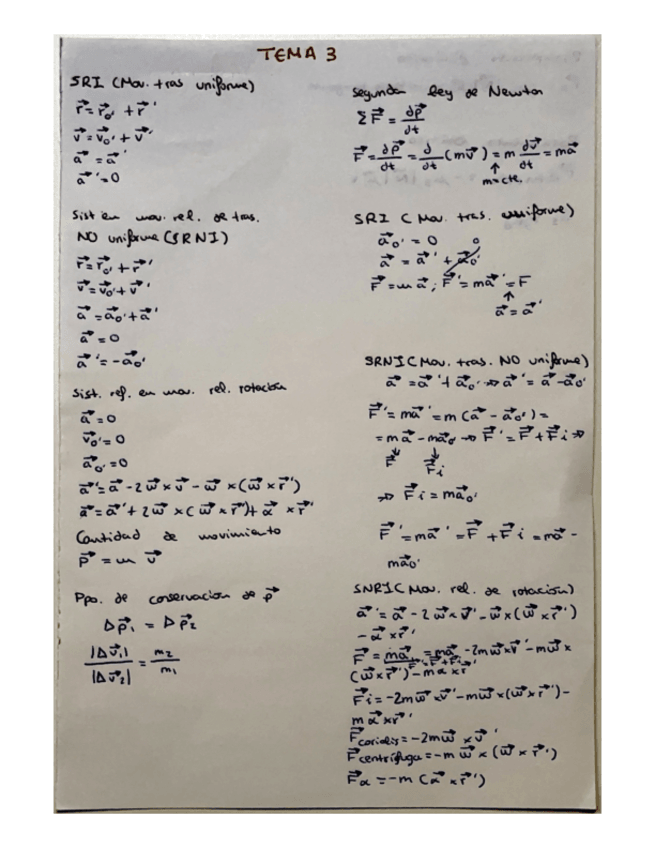 TEMA 3
SRI (Mov. tras uniforme)
r⃗ = r⃗o' + r⃗'
v⃗ = v⃗o' + v⃗'
a⃗ = a⃗'
a⃗' = 0
Sist en mov. rel. de tras.
NO uniforme (SRNI)
r⃗ = r⃗o' + r⃗'
v⃗ = v⃗o' + v⃗'
a⃗ = a⃗o' + a⃗'
a⃗ = 0
a⃗' = -a⃗o'
Sist. ref. en mov. rel. rotación
a⃗ = 0
v⃗o' = 0
a⃗o' = 0
a⃗' = a⃗ - 2ω⃗ × v⃗ - ω⃗ × (ω⃗ × r⃗')
a⃗ = a⃗' + 2ω⃗ × (ω⃗ × r⃗') + α⃗ × r⃗'
Cantidad de movimiento
p⃗ = m v⃗
Ppo. de conservacion de p⃗
Δp⃗₁ = Δp⃗₂
|Δv⃗₁| / |Δv⃗₂| = m₂ / m₁
Segunda ley de Newton
ΣF⃗ = dp⃗/dt
F⃗ = dp⃗/dt = d/dt (mv⃗) = m dv⃗/dt = ma⃗
↑
m=cte.
SRI (Mov. tras. uniforme)
a⃗o' = 0
a⃗ = a⃗' + a⃗o' 0
F⃗ = m a⃗ ; F⃗' = ma⃗' = F⃗
↑
a⃗ = a⃗'
SRNI (Mov. tras. NO uniforme)
a⃗ = a⃗' + a⃗o' → a⃗' = a⃗ - a⃗o'
F⃗' = ma⃗' = m (a⃗ - a⃗o') =
= ma⃗ - ma⃗o' → F⃗' = F⃗ + F⃗i ⇒
↓ ↓
F⃗ F⃗i
⇒ F⃗i = ma⃗o'
F⃗' = ma⃗' = F⃗ + F⃗i = ma⃗ -
ma⃗o'
SNRI (Mov. rel. de rotación)
a⃗' = a⃗ - 2ω⃗ × v⃗' - ω⃗ × (ω⃗ × r⃗')
- α⃗ × r⃗'
F⃗ = ma⃗ = ma⃗ - 2mω⃗ × v⃗' - mω⃗ ×
(ω⃗ × r⃗') - mα × r⃗'
F⃗i = -2mω⃗ × v⃗' - mω⃗ × (ω⃗ × r⃗') -
mα⃗ × r⃗'
F⃗coriolis = -2mω⃗ × v⃗'
F⃗centrífuga = -m ω⃗ × (ω⃗ × r⃗')
F⃗α = -m (α⃗ × r⃗')